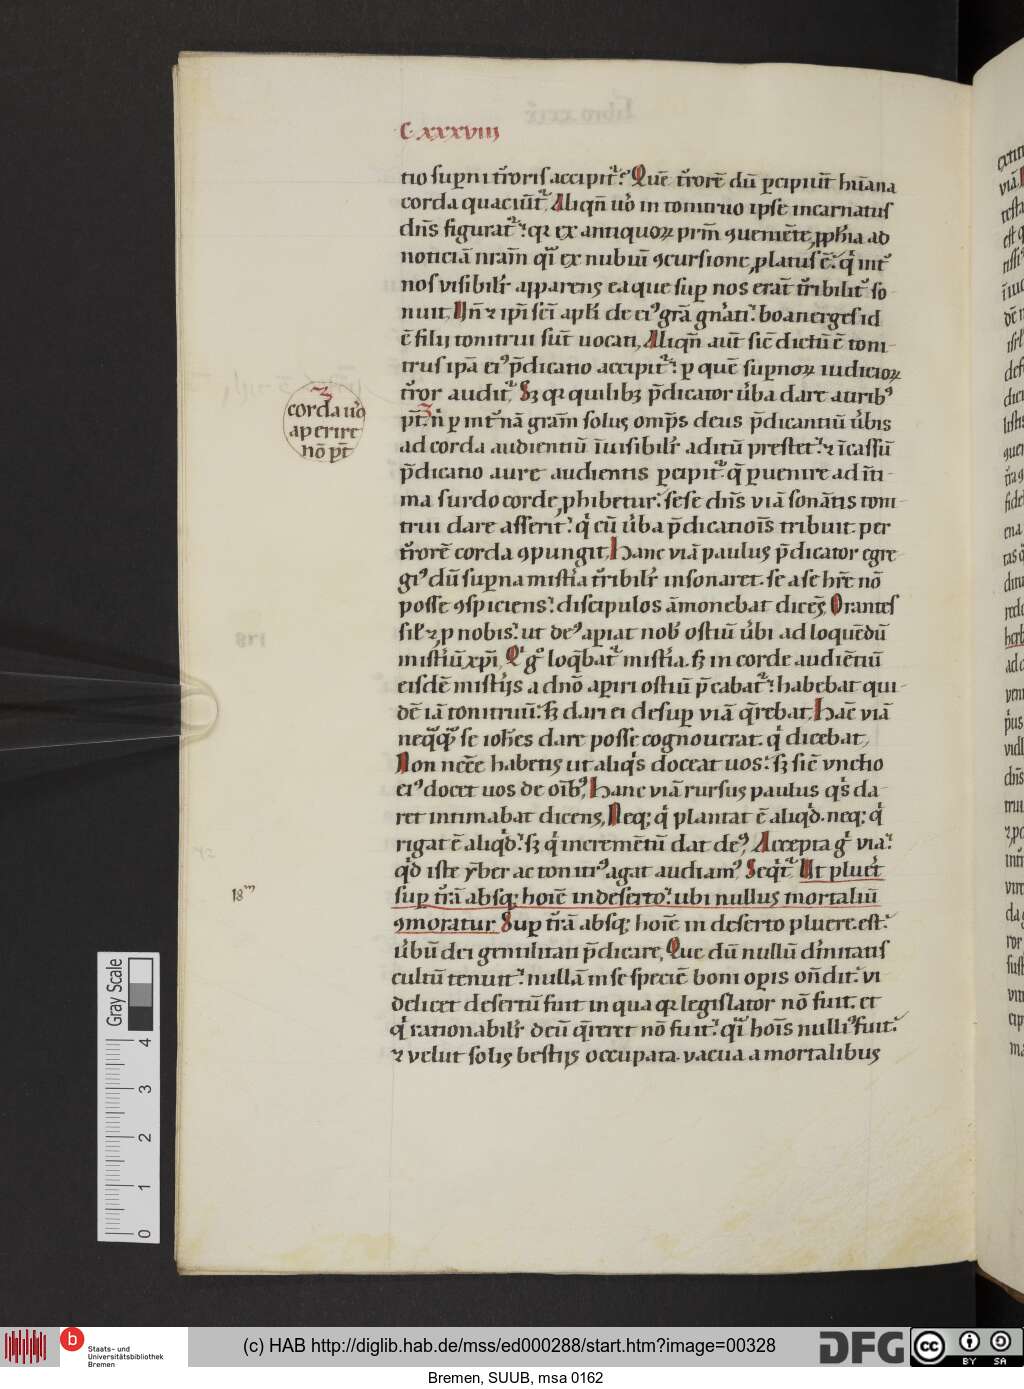 C xxxviij
tio supni t̄roris accipit᷑? Quē t̄rorē dū ꝑcipiūt hūana
corda quaciūt᷑. Aliqn̄ uͦo in tonitruo ipse incarnatus
dn̄s figurat᷑: qꝛ ex antiquoꝝ prm̄ ꝯueniēte ꝓph̄ia ad
noticiā nr̄am q̄i ex nubiū ꝯcursione ꝓlatus ē. qͥ int᷑
nos visibilr̄ apparens ea que suꝑ nos erāt t̄ribilit᷑ so
nuit. Hn̄ ⁊ ip̄i sc̄i apl̓i de ei᷒ gr̄a gn̓ati: boanerges id
ē filij tonitrui sūt uocati. Aliqn̄ aūt sic̄ dictū ē toni
trus ipā ei᷒ p̄dicatio accipit᷑: ꝑ quē suꝑnoꝝ iudicioꝝ
t̄ror audit᷑. Sꝫ qꝛ quilibꝫ p̄dicator u̓ba dare aurib᷒
pt̄. n̄ ꝑ int᷑nā gr̄am solus omp̄s deus p̄dicantiū u̓bis
ad corda audientiū īuisibilr̄ aditū prestet: ⁊ īcassū
p̄dicatio aure audientis ꝑcipit᷑. q̄ ꝑuenire ad īti
ma surdo corde ꝓhibetur: sese dn̄s viā sonātis toni
trui dare asserit: qͥ cū u̓ba p̄dicatiois tribuit. per
t̄rorē corda ꝯpungit. Hanc viā paulus p̄dicator egre
gi᷒ dū suꝑna mistīa t̄ribilr̄ insonaret. se a se hr̄e nō
posse ꝯspiciens: discipulos āmonebat dicēs. Orantes
sil̓ ⁊ ꝓ nobis: ut de᷒ aꝑiat nob̓ ostiū u̓bi ad loquēdū
mist̓iū xp̄i. Qͥ gͦ loq̄bat᷑ mist̓ia. sꝫ in corde audiētiū
eisdē mist̓ijs a dnō aꝑiri ostiū p̄cabat᷑: habebat qui
dē iā tonitruū: sꝫ dari ei desuꝑ viā q̄rebat. Hāc viā
neq̄q̄ se ioh̄es dare posse cognouerat. qͥ dicebat.
Non neccē habetis ut aliq̓s doceat uos: sꝫ sic̄ vnctio
ei᷒ docet uos de oīb᷒. Hanc viā rursus paulus q̓s da
ret intimabat dicens. Neqꝫ qͥ plantat ē aliqͥd. neqꝫ qͥ
rigat ē aliqͥd: sꝫ qͥ incremētū dat de᷒. Accepta gͥ via:
qͥd iste ẏber ac tonitr᷒ agat audiam᷒. Seqit᷑ Ut pluet̓
suꝑ t̄rā absqꝫ hoīe in deserto: ubi nullus mortaliū
ꝯmoratur Suꝑ t̄rā absqꝫ hoīe in deserto pluere. est:
u̓bū dei gentilitati p̄dicare. Que dū nullū d̄initatis
cultū tenuit: nullā in se speciē boni oꝑis on̄dit: vi
delicet desertū fuit in qua qꝛ legislator nō fuit. et
qͥ rationabilr̄ deū q̄reret nō fuit: q̄i hoīs nulli᷒ fuit:
⁊ velut solis bestijs occupata. vacua a mortalibus
corda uͦo
aperire
nō pt̄
18ᵐ
Gray Scale
4
3
2
1
0
b
Staats- und
Universitätsbibliothek
Bremen
(c) HAB http://diglib.hab.de/mss/ed000288/start.htm?image=00328
DFG
cc
BY SA
Bremen, SUUB, msa 0162